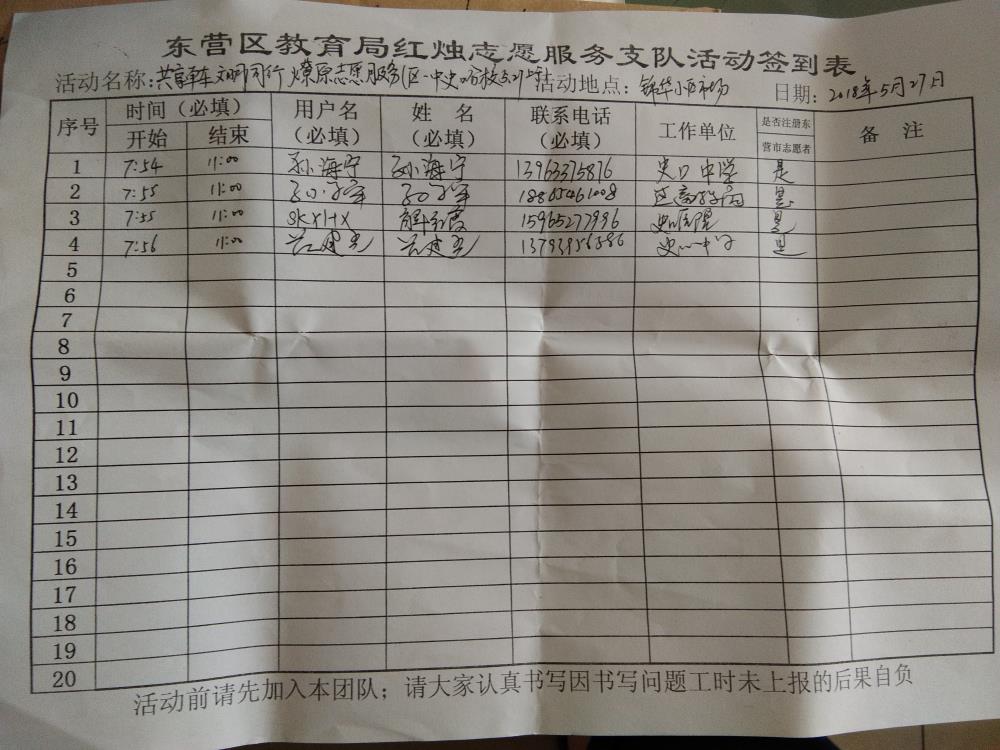 东营区教育局红烛志愿服务支队活动签到表
活动名称：共享单车 文明同行 燎原志愿服务 活动地点：锦华小区市场 日期：2018年5月27日
序号 时间（必填） 用户名（必填） 姓名（必填） 联系电话（必填） 工作单位 是否注册东营市志愿者 备注
开始 结束
1 7:54 11:00 孙海宁 孙海宁 13963375816 史口中学 是
2 7:55 11:00 18865461008 是
3 7:55 11:00 skxlhx 15965277996 是
4 7:56 11:00 13793956586 是
5
6
7
8
9
10
11
12
13
14
15
16
17
18
19
20
活动前请先加入本团队；请大家认真书写因书写问题工时未上报的后果自负